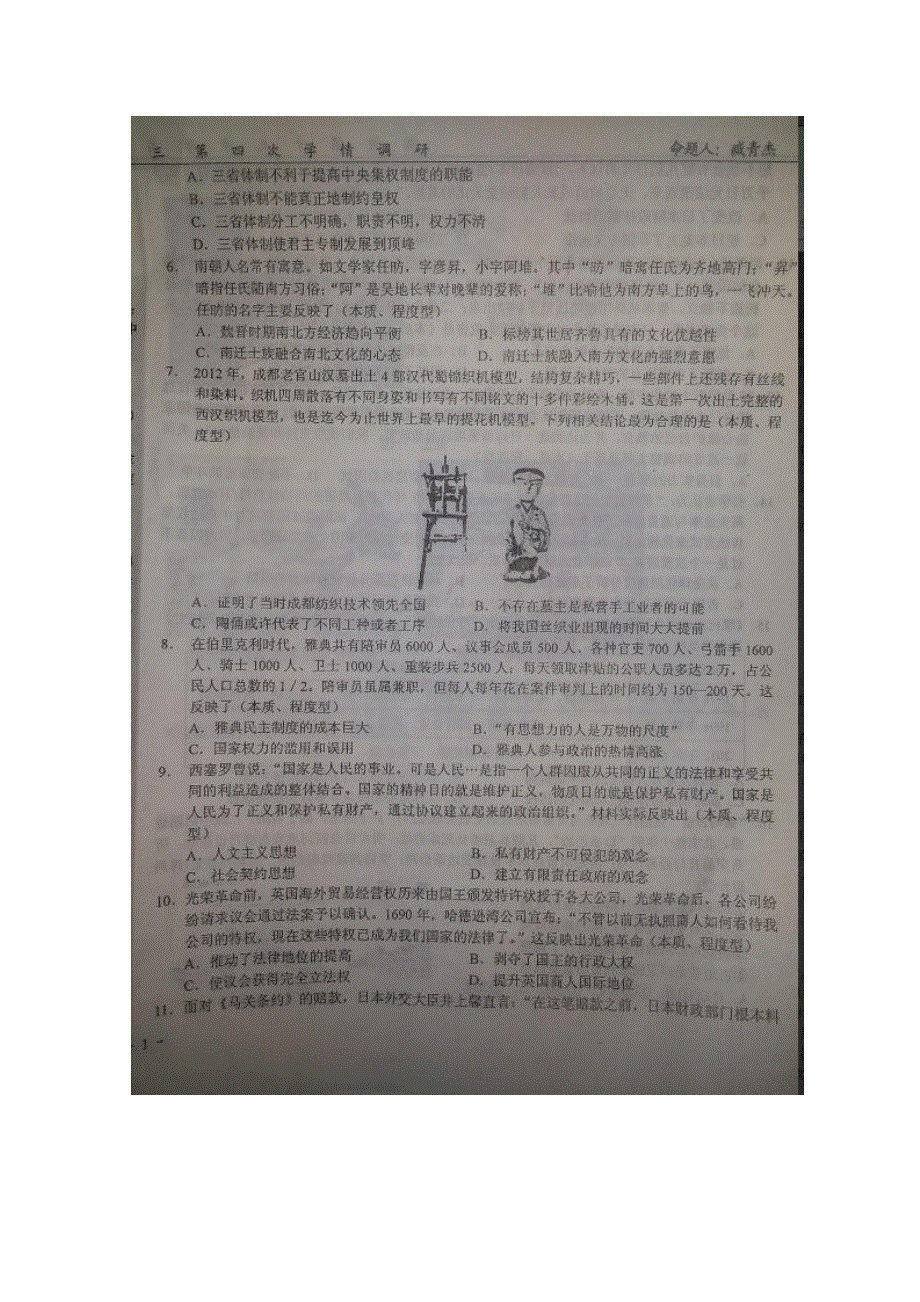 三 第四次学情调研 命题人：臧青杰
A．三省体制不利于提高中央集权制度的职能
B．三省体制不能真正地制约皇权
C．三省体制分工不明确，职责不明，权力不清
D．三省体制使君主专制发展到顶峰
6． 南朝人名常有寓意。如文学家任昉，字彦昇，小字阿堆。其中“昉”暗寓任氏为齐地高门；“昇”
暗指任氏随南方习俗；“阿”是吴地长辈对晚辈的爱称；“堆”比喻他为南方阜上的鸟，一飞冲天。
任昉的名字主要反映了（本质、程度型）
A．魏晋时期南北方经济趋向平衡 B．标榜其世居齐鲁具有的文化优越性
C．南迁士族融合南北文化的心态 D．南迁士族融入南方文化的强烈意愿
7． 2012 年，成都老官山汉墓出土 4 部汉代蜀锦织机模型，结构复杂精巧，一些部件上还残存有丝线
和染料。织机四周散落有不同身姿和书写有不同铭文的十多件彩绘木俑。这是第一次出土完整的
西汉织机模型，也是迄今为止世界上最早的提花机模型。下列相关结论最为合理的是（本质、程
度型）
A．证明了当时成都纺织技术领先全国 B．不存在墓主是私营手工业者的可能
C．陶俑或许代表了不同工种或者工序 D．将我国丝织业出现的时间大大提前
8． 在伯里克利时代，雅典共有陪审员 6000 人、议事会成员 500 人、各种官吏 700 人、弓箭手 1600
人、骑士 1000 人、卫士 1000 人、重装步兵 2500 人；每天领取津贴的公职人员多达 2 万，占公
民人口总数的 1／2。陪审员虽属兼职，但每人每年花在案件审判上的时间约为 150—200 天。这
反映了（本质、程度型）
A．雅典民主制度的成本巨大 B．“有思想力的人是万物的尺度”
C．国家权力的滥用和误用 D．雅典人参与政治的热情高涨
9． 西塞罗曾说：“国家是人民的事业。可是人民…是指一个人群因服从共同的正义的法律和享受共
同的利益造成的整体结合。国家的精神目的就是维护正义，物质目的就是保护私有财产。国家是
人民为了正义和保护私有财产，通过协议建立起来的政治组织。”材料实际反映出（本质、程度
型）
A．人文主义思想 B．私有财产不可侵犯的观念
C．社会契约思想 D．建立有限责任政府的观念
10． 光荣革命前，英国海外贸易经营权历来由国王颁发特许状授予各大公司，光荣革命后，各公司纷
纷请求议会通过法案予以确认。1690 年，哈德逊湾公司宣布：“不管以前无执照商人如何看待我
公司的特权，现在这些特权已成为我们国家的法律了。”这反映出光荣革命（本质、程度型）
A．推动了法律地位的提高 B．剥夺了国王的行政大权
C．使议会获得完全立法权 D．提升英国商人国际地位
11．面对《马关条约》的赔款，日本外交大臣井上馨直言：“在这笔赔款之前，日本财政部门根本料
- 1 -